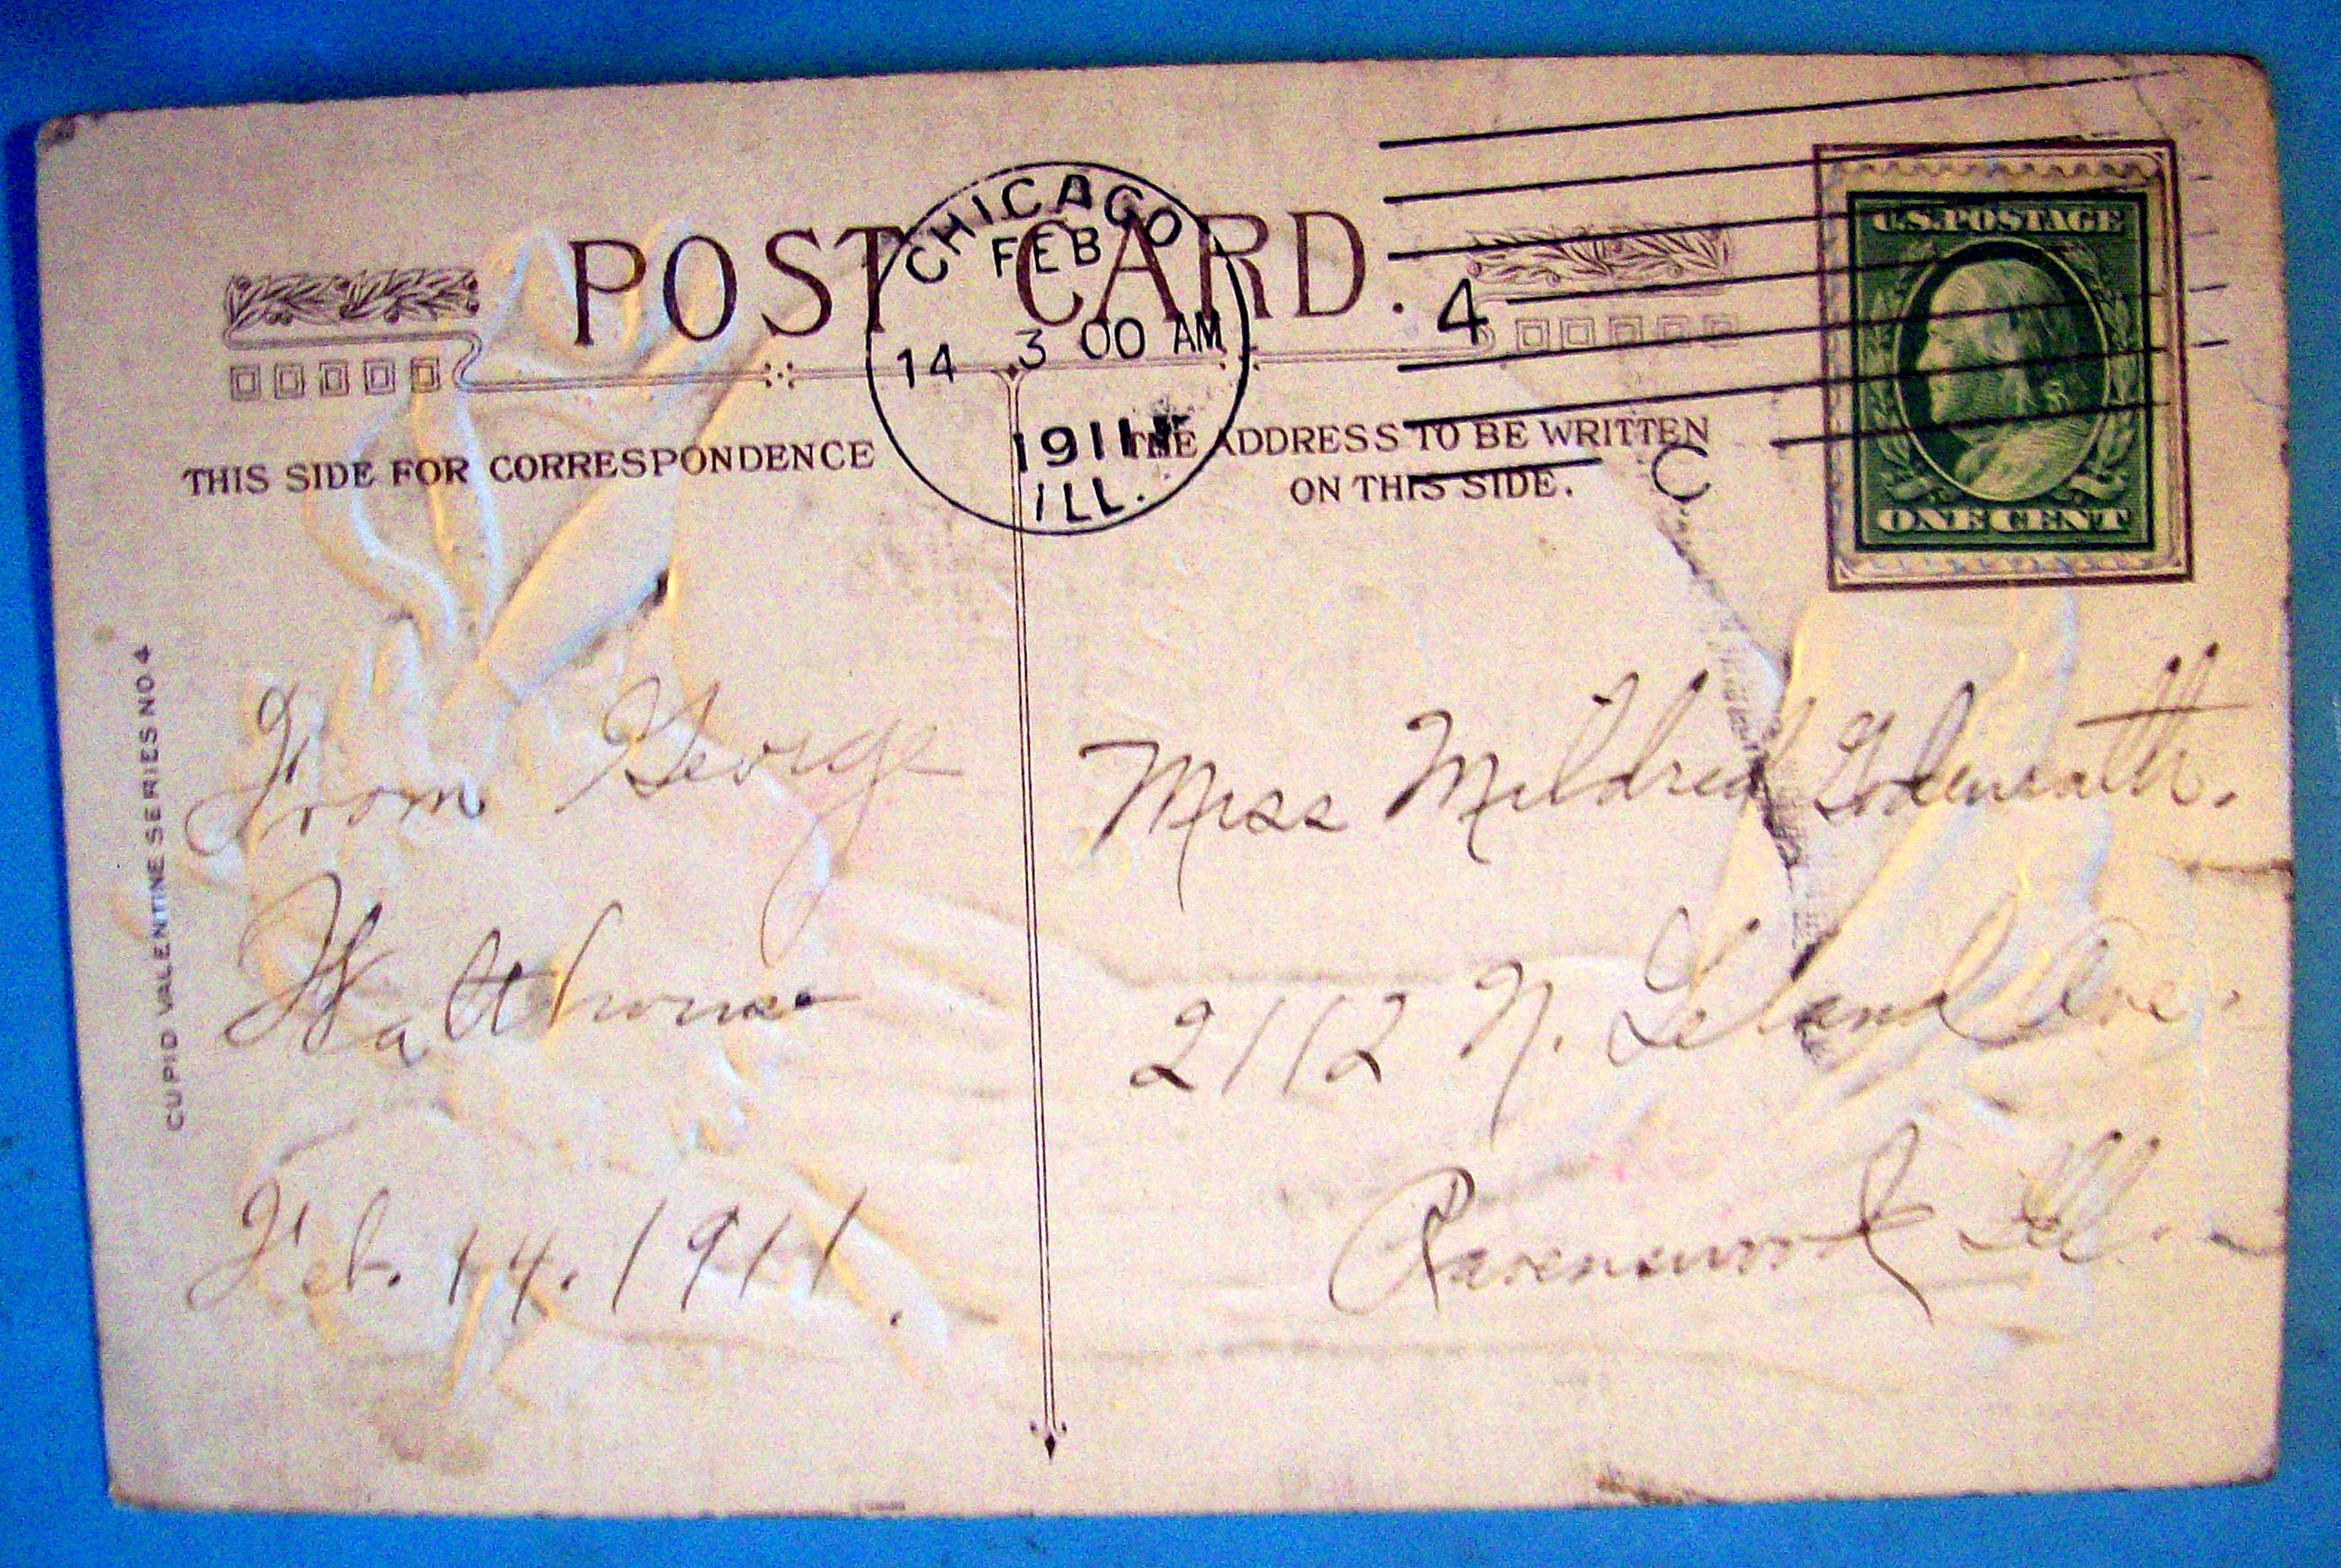 POST CARD.
CHICAGO
FEB
14 3 00 AM
1911
ILL.
4
C
U.S. POSTAGE
ONE CENT
THIS SIDE FOR CORRESPONDENCE
THE ADDRESS TO BE WRITTEN
ON THIS SIDE.
CUPID VALENTINE SERIES NO. 4
From George
Feb. 14. 1911.
Miss Mildred
2112 N. Leland Ave.
Ravenswood Ill.